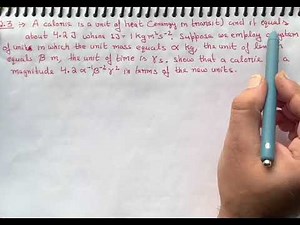 2.3 :→ A calorie is a unit of heat (energy in transit) and it equals
about 4.2 J where 1J = 1 kg m² s⁻². Suppose we employ a system
of units in which the unit mass equals α kg, the unit of
equals β m, the unit of time is γ s, show that a calorie a
magnitude 4.2 α⁻¹ β⁻² γ² in terms of the new units.